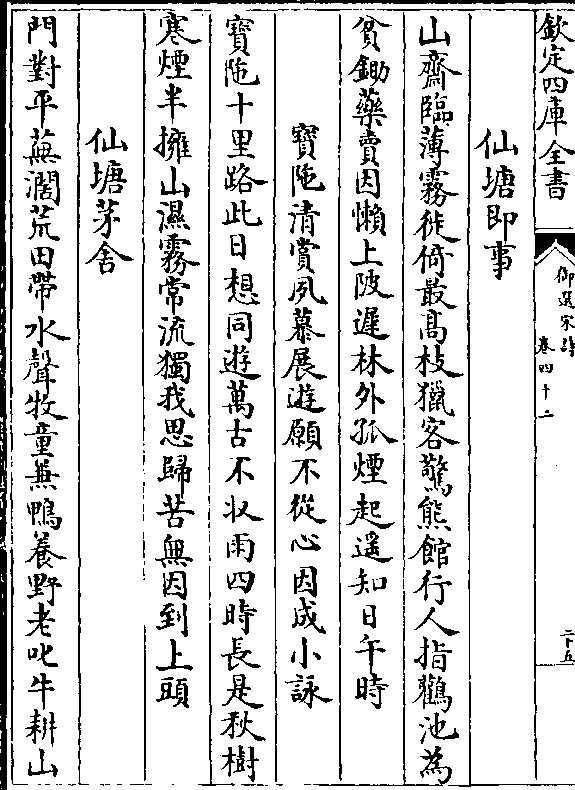 欽定四庫全書
御選宋詩
卷四十二
二十五
仙塘即事
山齋臨薄霧徙倚最髙枝獵客驚熊館行人指鸛池為
貧鋤藥賣因懶上陂遲林外孤煙起遥知日午時
寳陁清賞夙慕展遊願不從心因成小詠
寳陁十里路此日想同遊萬古不収雨四時長是秋樹
寒煙半擁山濕霧常流獨我思歸苦無因到上頭
仙塘茅舍
門對平蕪濶荒田帶水聲牧童兼鴨養野老叱牛耕山